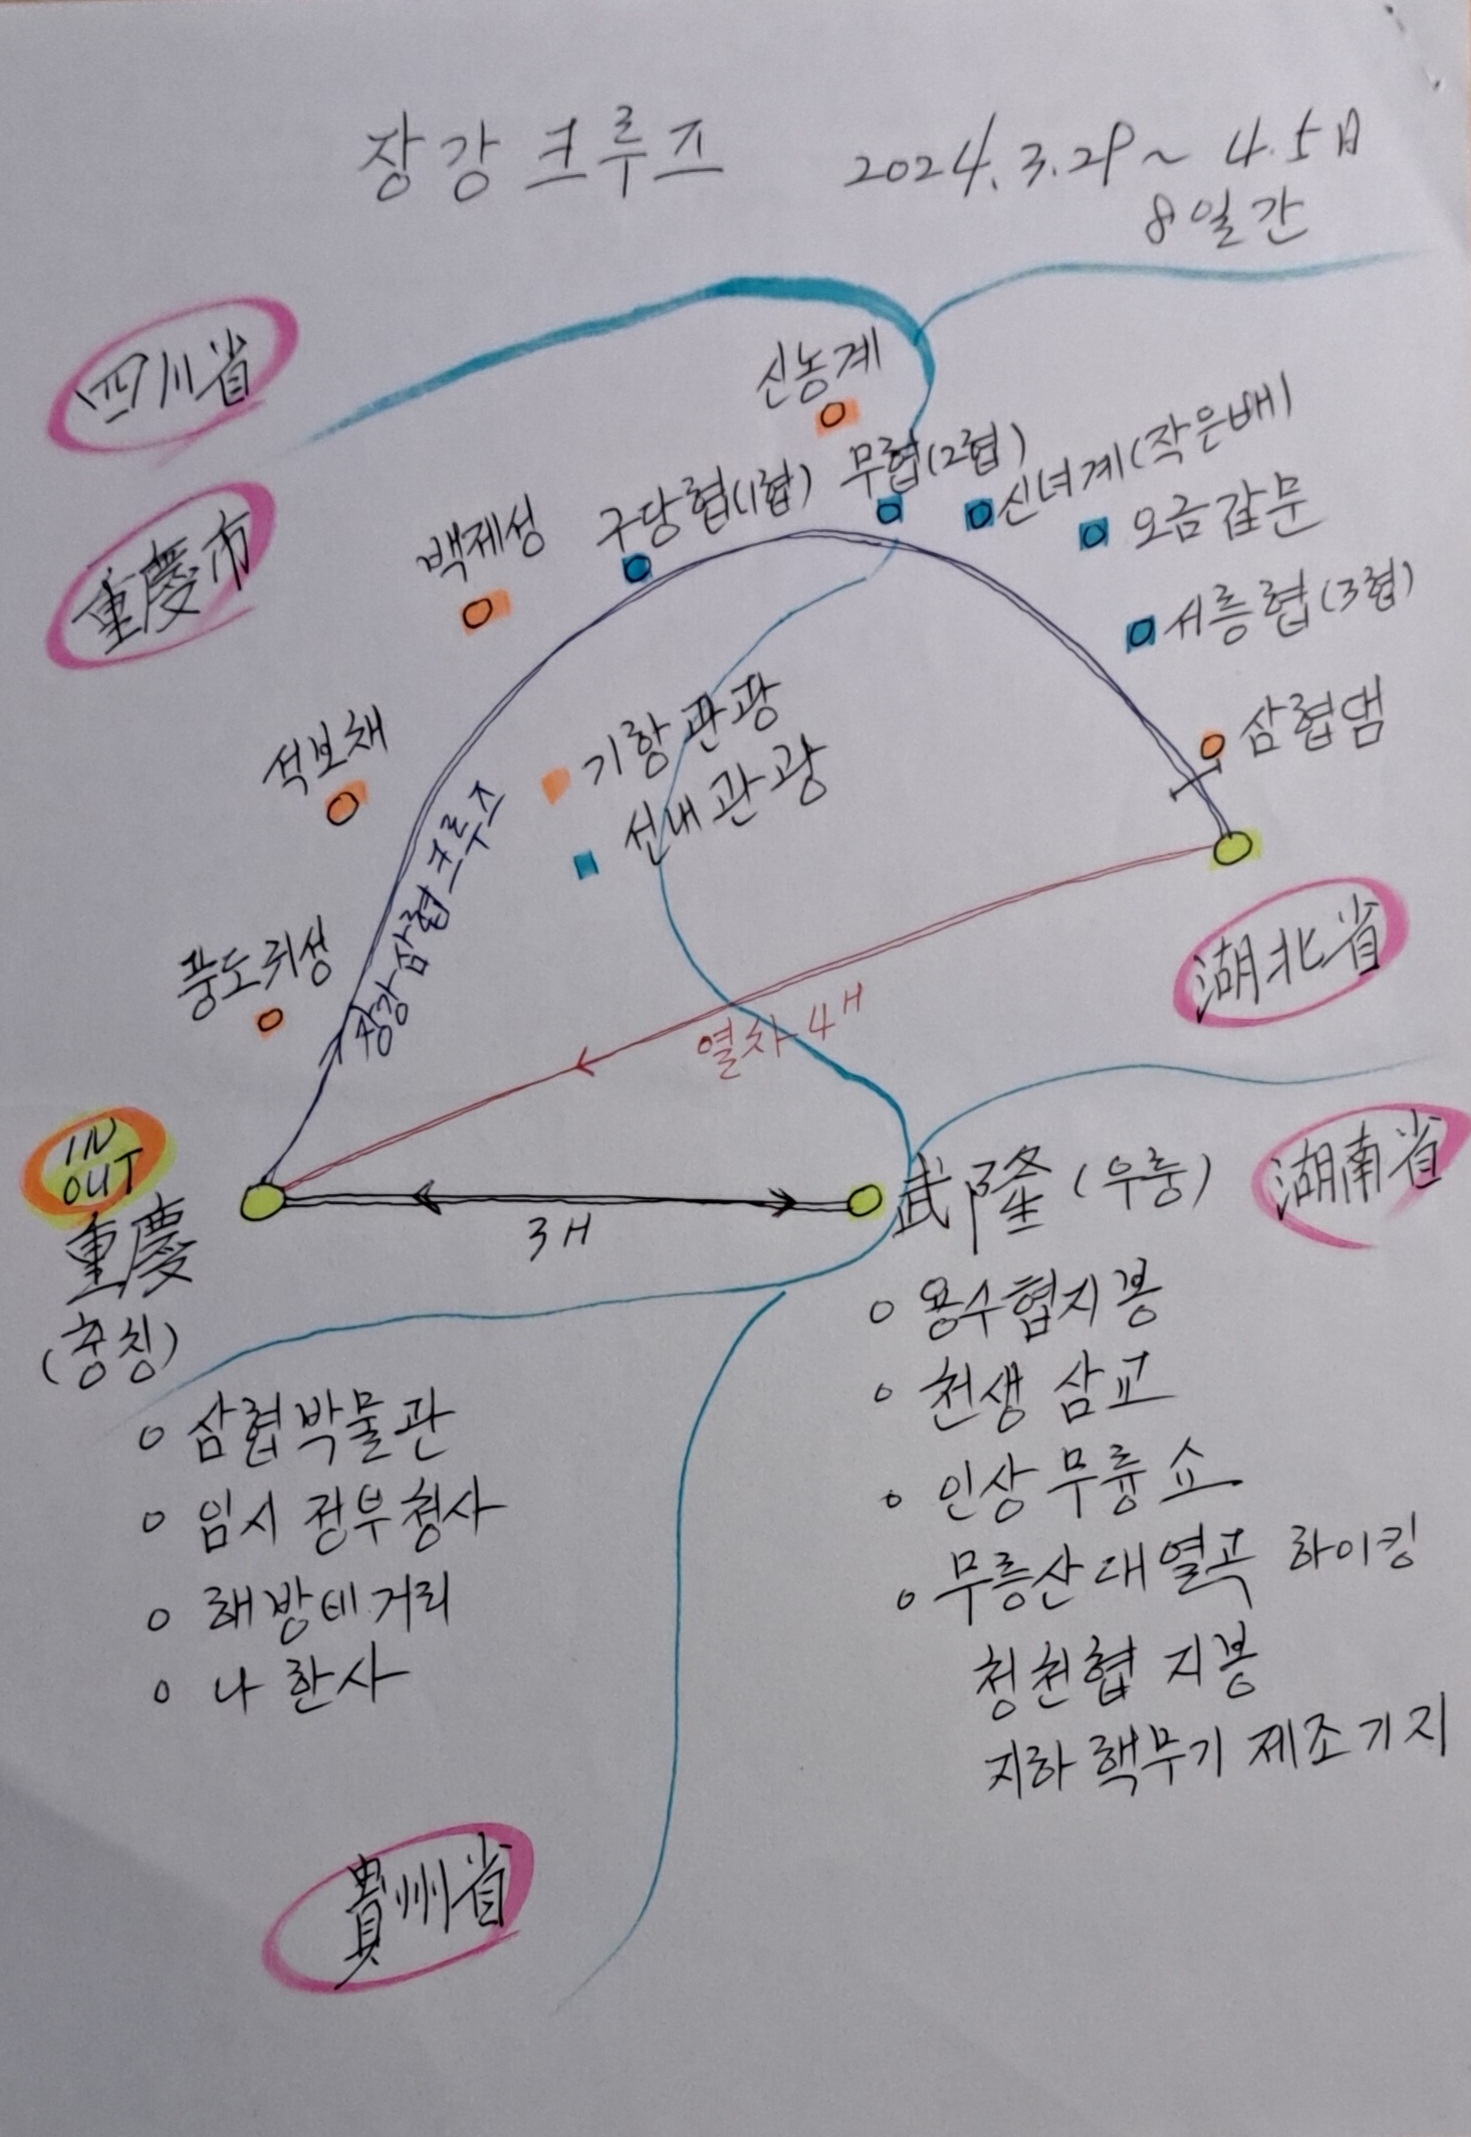 장강 크루즈 2024. 3. 29 ~ 4. 5日
8일간
四川省
신농계
重慶市
백제성
구당협(1협)
무협(2협)
신녀계(작은배)
오금갑문
서릉협(3협)
석보채
기항 관광
선내 관광
삼협댐
풍도귀성
장강삼협 크루즈
湖北省
열차 4H
IN
OUT
重慶
(충칭)
3H
武隆 (우룽)
湖南省
삼협박물관
임시 정부청사
해방테 거리
나한사
용수협지봉
천생 삼교
인상 무륭 쇼
무릉산대열곡 하이킹
청천협 지봉
지하 핵무기 제조기지
貴州省